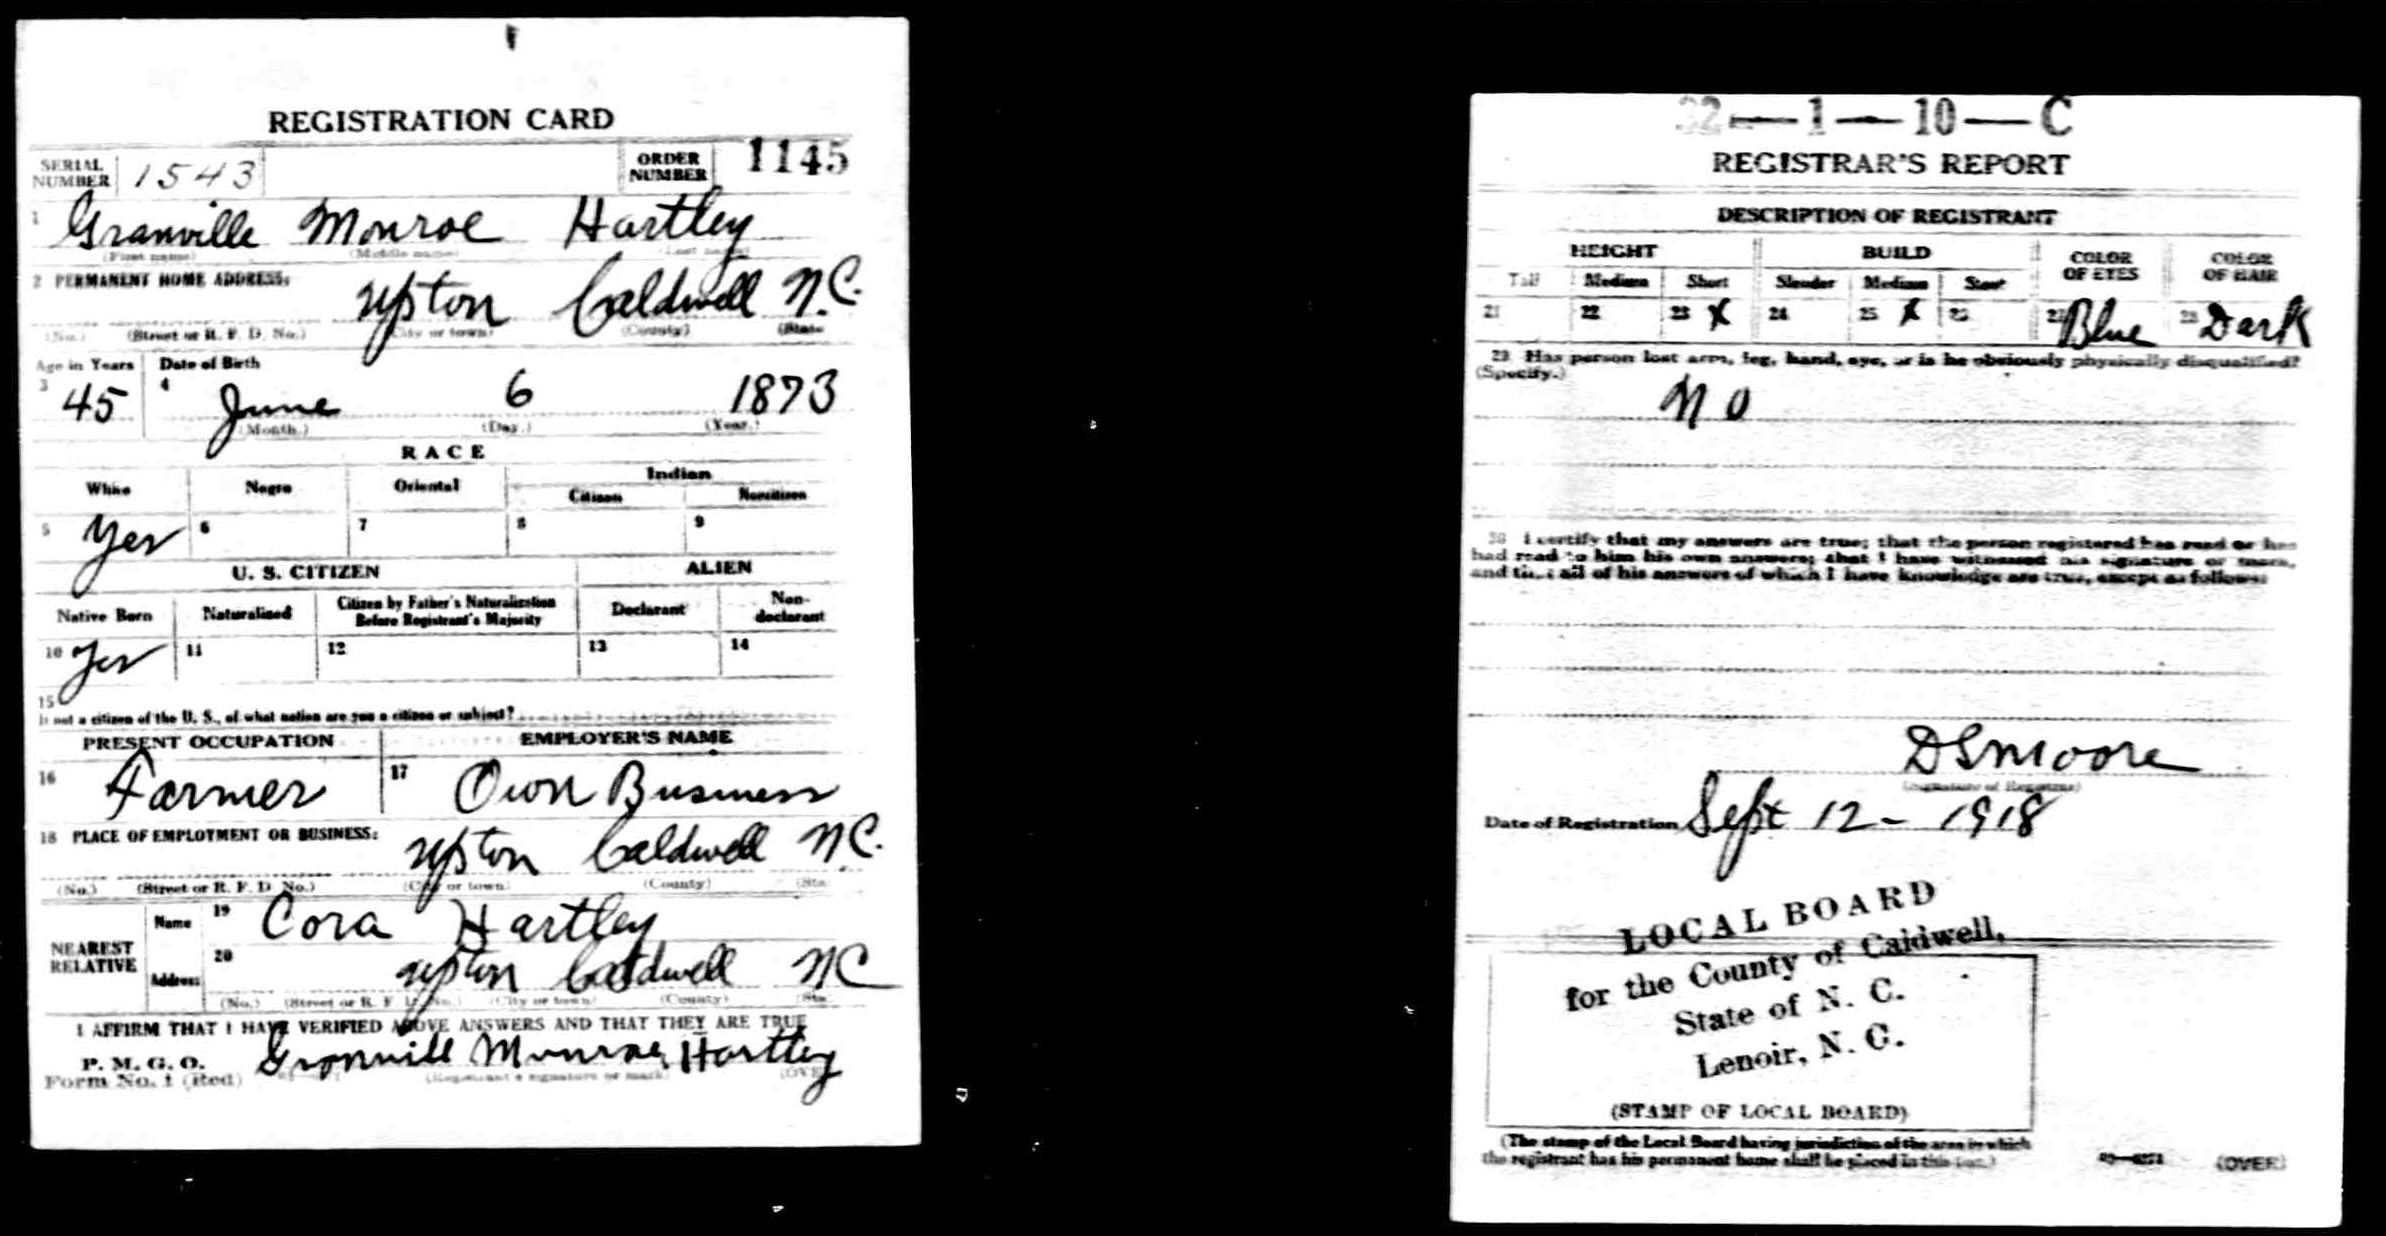 REGISTRATION CARD
SERIAL NUMBER 1543 ORDER NUMBER 1145
1 Granville Monroe Hartley
(First name) (Middle name) (Last name)
2 PERMANENT HOME ADDRESS:
Upton Caldwell N.C.
(No.) (Street or R. F. D. No.) (City or town) (County) (State
Age in Years Date of Birth
3 45 4 June 6 1873
(Month.) (Day.) (Year.)
RACE
White Negro Oriental Indian
Citizen Noncitizen
5 Yes 6 7 8 9
U. S. CITIZEN ALIEN
Native Born Naturalized Citizen by Father's Naturalization Before Registrant's Majority Declarant Non-declarant
10 Yes 11 12 13 14
15
If not a citizen of the U. S., of what nation are you a citizen or subject?
PRESENT OCCUPATION EMPLOYER'S NAME
16 Farmer 17 Own Business
18 PLACE OF EMPLOYMENT OR BUSINESS:
Upton Caldwell N.C.
(No.) (Street or R. F. D. No.) (City or town) (County) (Sta
NEAREST RELATIVE Name 19 Cora Hartley
Address 20 Upton Caldwell NC
(No.) (Street or R. F. D. No.) (City or town) (County) (Sta
I AFFIRM THAT I HAVE VERIFIED ABOVE ANSWERS AND THAT THEY ARE TRUE
P. M. G. O.
Form No. 1 (Red) Granvill Munroe Hartley
(Registrant's signature or mark) (OVE
32—1—10—C
REGISTRAR'S REPORT
DESCRIPTION OF REGISTRANT
HEIGHT BUILD COLOR OF EYES COLOR OF HAIR
Tall Medium Short Slender Medium Stout
21 22 23 X 24 25 X 26 27 Blue 28 Dark
29 Has person lost arm, leg, hand, eye, or is he obviously physically disqualified?
(Specify.)
No
30 I certify that my answers are true; that the person registered has read or has
had read to him his own answers; that I have witnessed his signature or mark,
and that all of his answers of which I have knowledge are true, except as follows:
D S Moore
(Signature of Registrar)
Date of Registration Sept 12 - 1918
LOCAL BOARD
for the County of Caldwell,
State of N. C.
Lenoir, N. C.
(STAMP OF LOCAL BOARD)
(The stamp of the Local Board having jurisdiction of the area in which
the registrant has his permanent home shall be placed in this box.)
(OVER)